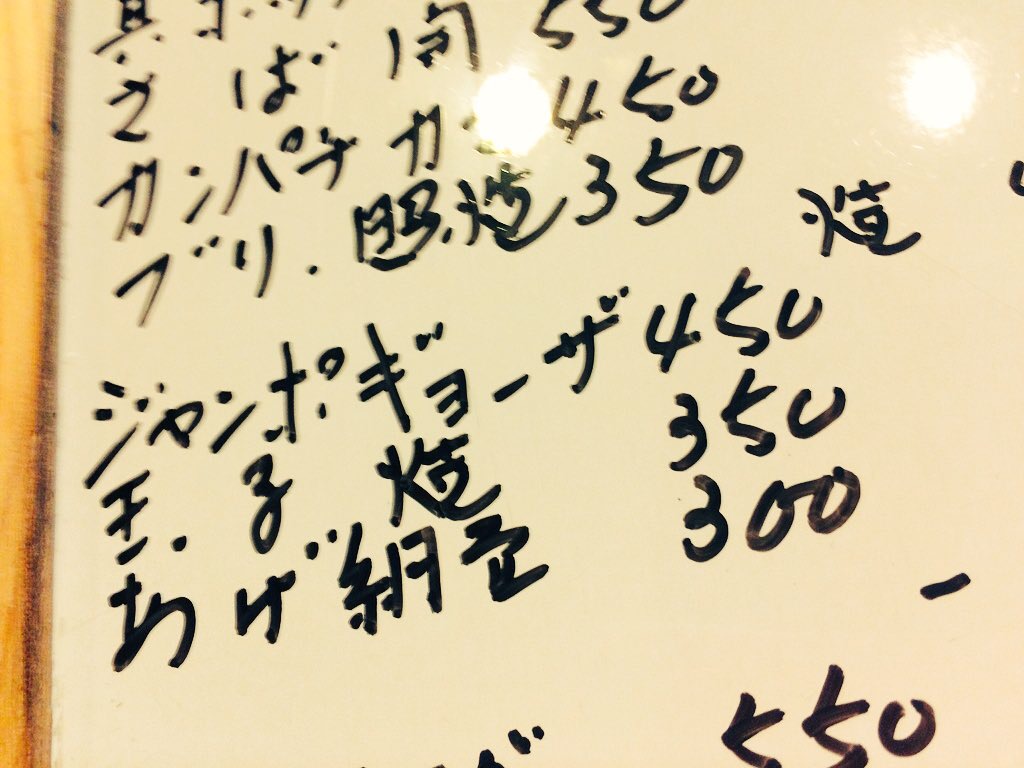 さば 開 550
カンパチ カマ 450
ブリ.照焼 350
焼
ジャンボギョーザ 450
玉.子 焼 350
あげ網 300
550